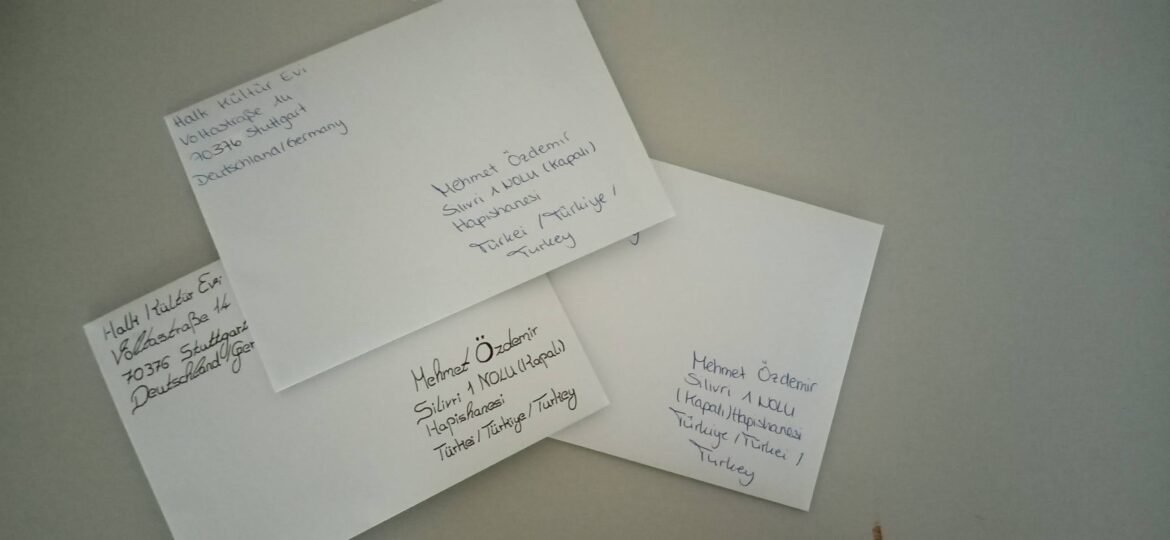 Halk Kültür Evi
Voltastraße 14
70376 Stuttgart
Deutschland/Germany
Mehmet Özdemir
Silivri 1 NOLU (Kapalı)
Hapishanesi
Türkei / Türkiye /
Turkey
Halk Kültür Evi
Voltastraße 14
70376 Stuttgart
Deutschland/Ger
Mehmet Özdemir
Silivri 1 NOLU (Kapalı)
Hapishanesi
Türkei/Türkiye/Turkey
y
Mehmet Özdemir
Silivri 1 NOLU
(Kapalı) Hapishanesi
Türkiye / Türkei /
Turkey